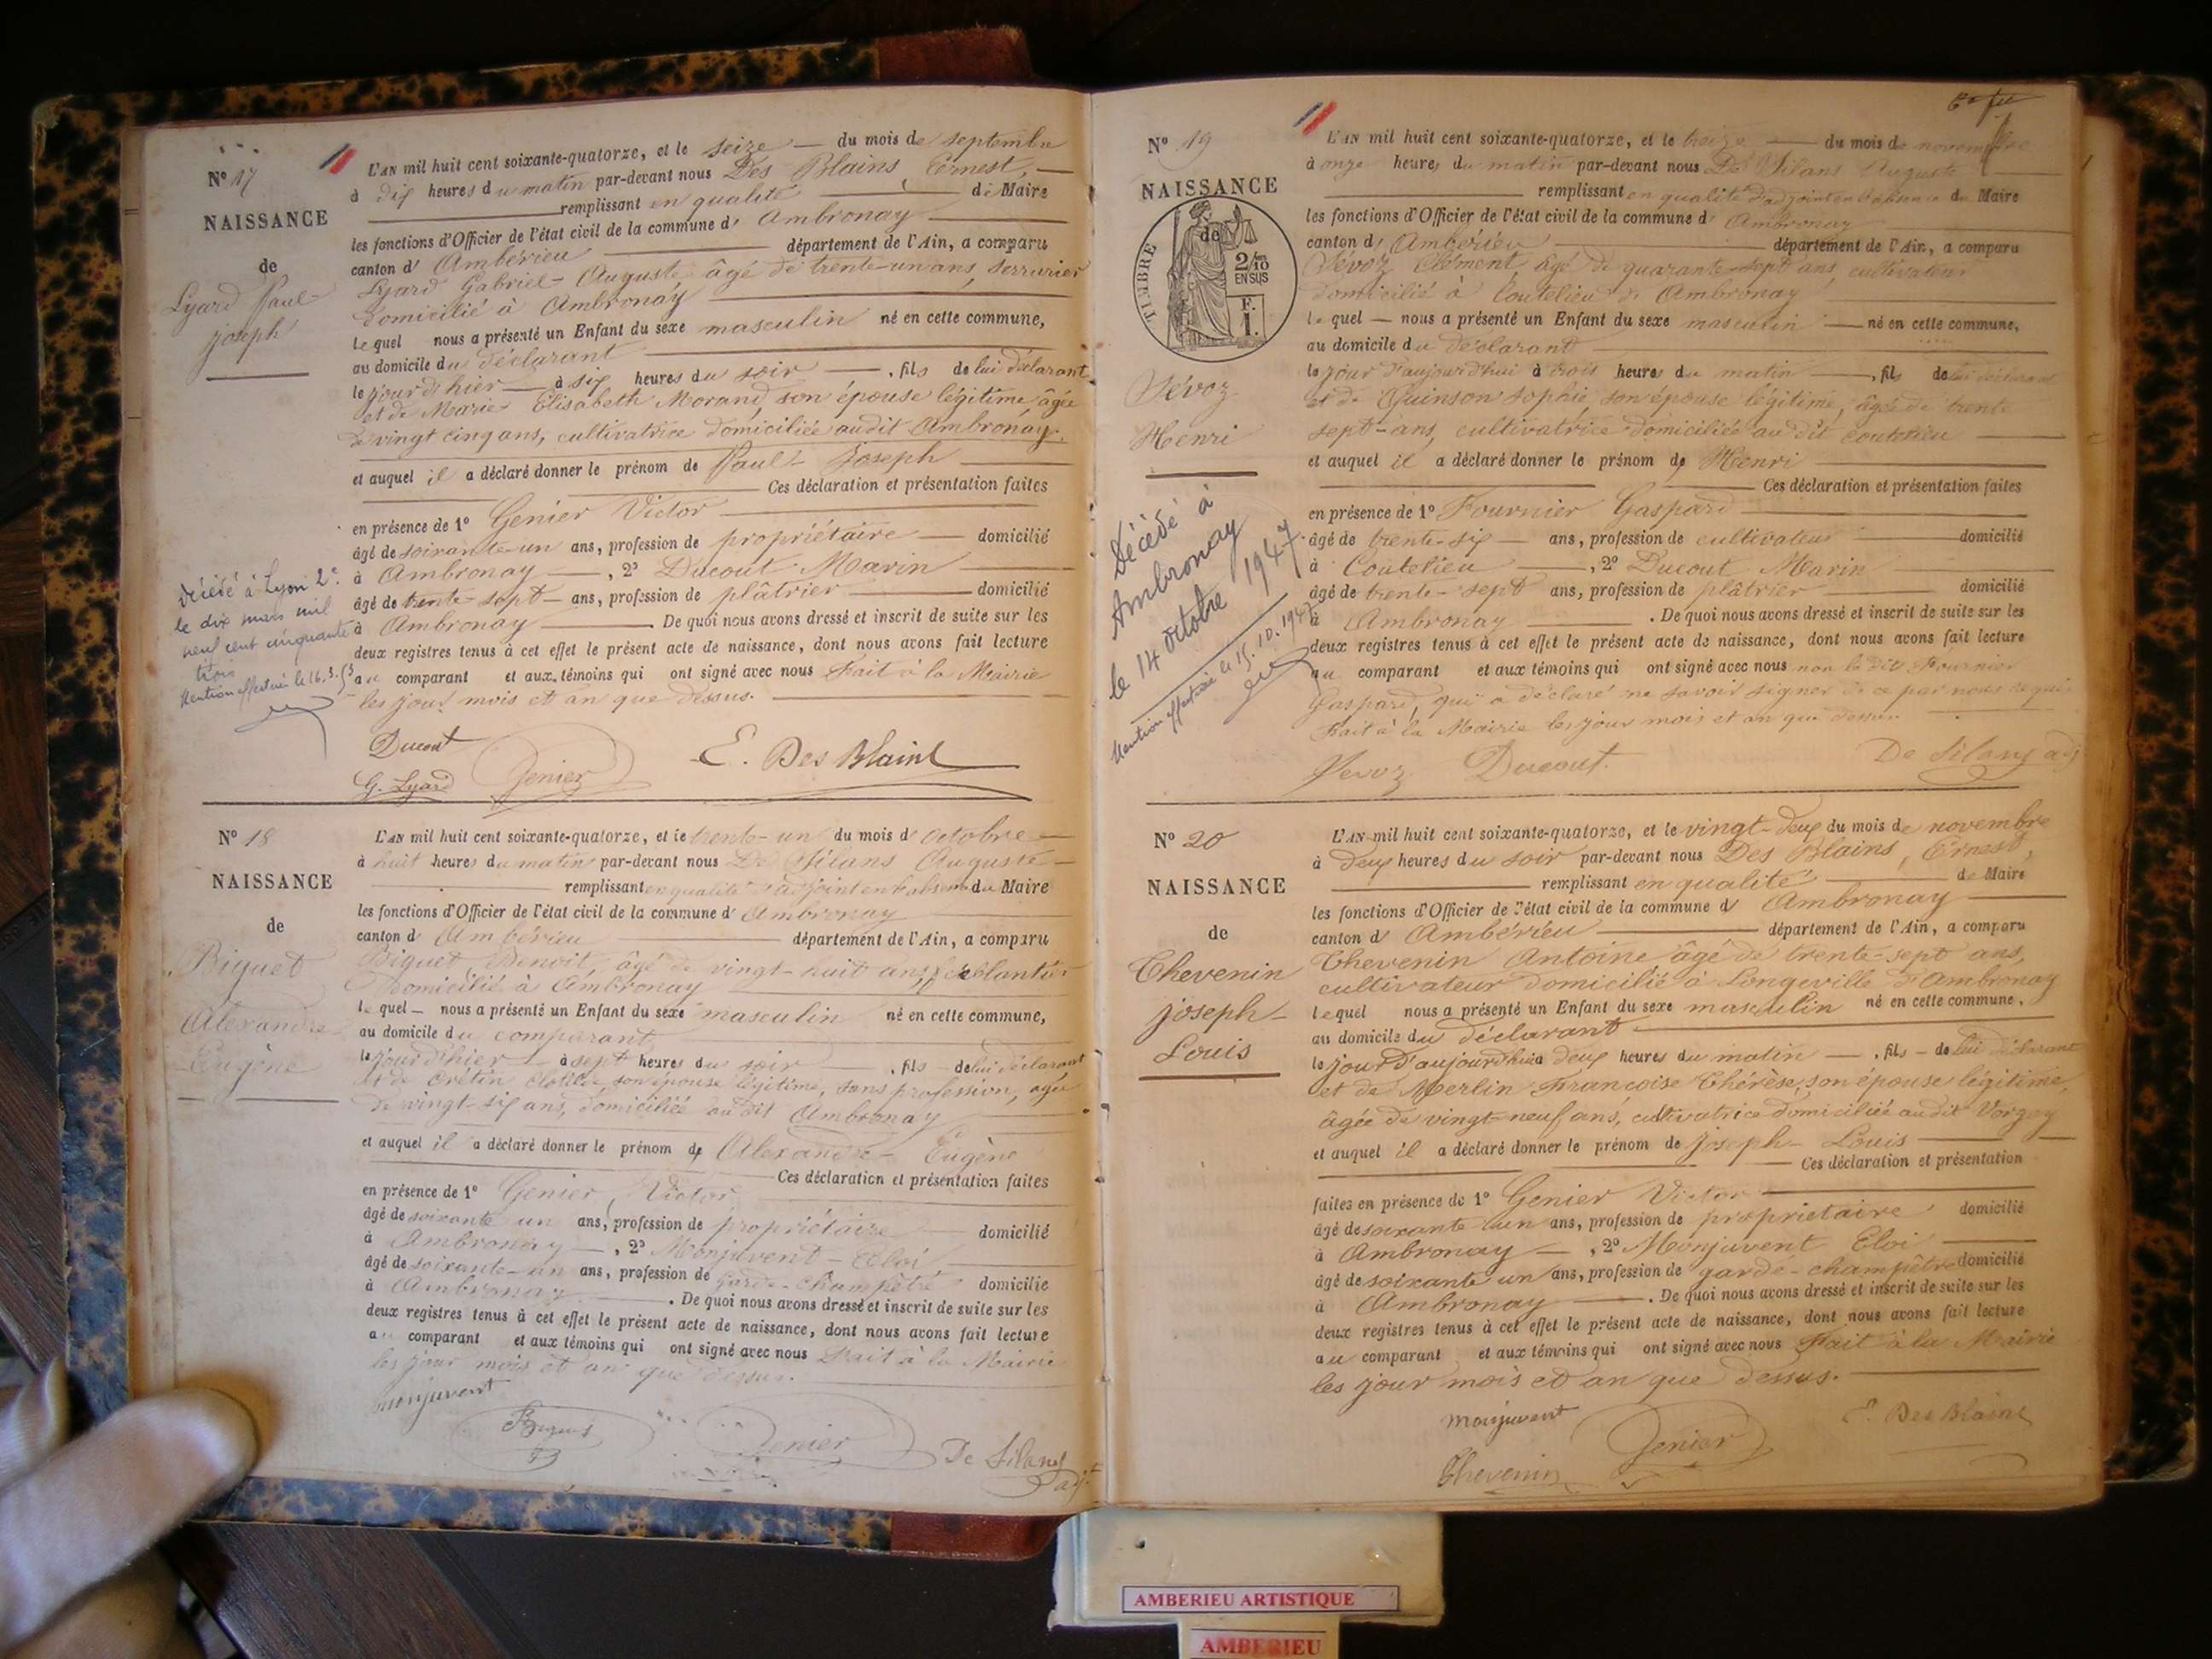 N° 17
NAISSANCE
de
Lyard Paul-
joseph
L'AN mil huit cent soixante-quatorze, et le seize du mois de septembre
à dix heures du matin par-devant nous Des Blains, Ernest,
remplissant en qualité de Maire
les fonctions d'Officier de l'état civil de la commune d' Ambronay
canton d' Ambérieu département de l'Ain, a comparu
Lyard Gabriel-Auguste âgé de trente-un ans, serrurier
domicilié à Ambronay
lequel nous a présenté un Enfant du sexe masculin né en cette commune,
au domicile du déclarant
le jour d'hier à six heures du soir, fils de lui déclarant
et de Marie Elisabeth Morand, son épouse légitime, âgée
de vingt cinq ans, cultivatrice domiciliée audit Ambronay.
et auquel il a déclaré donner le prénom de Paul-Joseph
Ces déclaration et présentation faites
en présence de 1° Genier Victor
âgé de soixante-un ans, profession de propriétaire domicilié
à Ambronay, 2° Ducout Marin
âgé de trente-sept ans, profession de plâtrier domicilié
à Ambronay. De quoi nous avons dressé et inscrit de suite sur les
deux registres tenus à cet effet le présent acte de naissance, dont nous avons fait lecture
au comparant et aux témoins qui ont signé avec nous Fait à la Mairie
les jour mois et an que dessus.
Décédé à Lyon 2e
le dix mars mil
neuf cent cinquante
trois
Mention effectuée le 16.3.53
Ducout
G. Lyard Genier E. Des Blains
N° 18
NAISSANCE
de
Biguet
Alexandre
Eugène
L'AN mil huit cent soixante-quatorze, et le trente-un du mois d'octobre
à huit heures du matin par-devant nous De Silans Auguste
remplissant en qualité d'adjoint en l'absence du Maire
les fonctions d'Officier de l'état civil de la commune d' Ambronay
canton d' Ambérieu département de l'Ain, a comparu
Biguet Benoit, âgé de vingt-huit ans, ferblantier
domicilié à Ambronay
lequel nous a présenté un Enfant du sexe masculin né en cette commune,
au domicile du comparant
le jour d'hier à sept heures du soir, fils de lui déclarant
et de Crétin Clotilde son épouse légitime, sans profession, âgée
de vingt-six ans, domiciliée audit Ambronay
et auquel il a déclaré donner le prénom de Alexandre-Eugène
Ces déclaration et présentation faites
en présence de 1° Genier, Victor
âgé de soixante un ans, profession de propriétaire domicilié
à Ambronay, 2° Monjuvent-Eloi
âgé de soixante-un ans, profession de garde-champêtre domicilié
à Ambronay. De quoi nous avons dressé et inscrit de suite sur les
deux registres tenus à cet effet le présent acte de naissance, dont nous avons fait lecture
au comparant et aux témoins qui ont signé avec nous Fait à la Mairie
les jour mois et an que dessus.
monjuvent
Biguet Genier De Silans
adjt
N° 19
NAISSANCE
de
TIMBRE
2/10
EN SUS
F.
1.
Sévoz
Henri
L'AN mil huit cent soixante-quatorze, et le treize du mois de novembre
à onze heures du matin par-devant nous De Silans Auguste
remplissant en qualité d'adjoint en l'absence du Maire
les fonctions d'Officier de l'état civil de la commune d' Ambronay
canton d' Ambérieu département de l'Ain, a comparu
Sévoz Clément, âgé de quarante-sept ans, cultivateur
domicilié à Coutelieu d'Ambronay
lequel nous a présenté un Enfant du sexe masculin né en cette commune,
au domicile du déclarant
le jour d'aujourd'hui à trois heures du matin, fils de lui déclarant
et de Quinson Sophie, son épouse légitime, âgée de trente
sept-ans, cultivatrice domiciliée au dit coutelieu
et auquel il a déclaré donner le prénom de Henri
Ces déclaration et présentation faites
en présence de 1° Fournier Gaspard
âgé de trente-six ans, profession de cultivateur domicilié
à Coutelieu, 2° Ducout Marin
âgé de trente-sept ans, profession de plâtrier domicilié
à Ambronay. De quoi nous avons dressé et inscrit de suite sur les
deux registres tenus à cet effet le présent acte de naissance, dont nous avons fait lecture
au comparant et aux témoins qui ont signé avec nous non le dit Fournier
Gaspard, qui a déclaré ne savoir signer de ce par nous requis
Fait à la Mairie les jour mois et an que dessus.
Décédé à
Ambronay
le 14 octobre 1947
Mention effectuée le 15.10.1947
Sevoz Ducout. De Silans adj
N° 20
NAISSANCE
de
Thevenin
joseph-
Louis
L'AN mil huit cent soixante-quatorze, et le vingt-deux du mois de novembre
à deux heures du soir par-devant nous Des Blains, Ernest,
remplissant en qualité de Maire
les fonctions d'Officier de l'état civil de la commune d' Ambronay
canton d' Ambérieu département de l'Ain, a comparu
Thevenin Antoine âgé de trente-sept ans,
cultivateur domicilié à Longeville d'Ambronay
lequel nous a présenté un Enfant du sexe masculin né en cette commune,
au domicile du déclarant
le jour d'aujourd'hui à deux heures du matin, fils de lui déclarant
et de Merlin Francoise Thérèse, son épouse légitime,
âgée de vingt-neuf ans, cultivatrice domiciliée audit
et auquel il a déclaré donner le prénom de joseph-Louis
Ces déclaration et présentation
faites en présence de 1° Genier Victor
âgé de soixante un ans, profession de propriétaire domicilié
à Ambronay, 2° Monjuvent Eloi
âgé de soixante un ans, profession de garde-champêtre domicilié
à Ambronay. De quoi nous avons dressé et inscrit de suite sur les
deux registres tenus à cet effet le présent acte de naissance, dont nous avons fait lecture
au comparant et aux témoins qui ont signé avec nous Fait à la Mairie
les jour mois et an que dessus.
monjuvent E. Des Blains
Thevenin Genier
AMBERIEU ARTISTIQUE
AMBERIEU